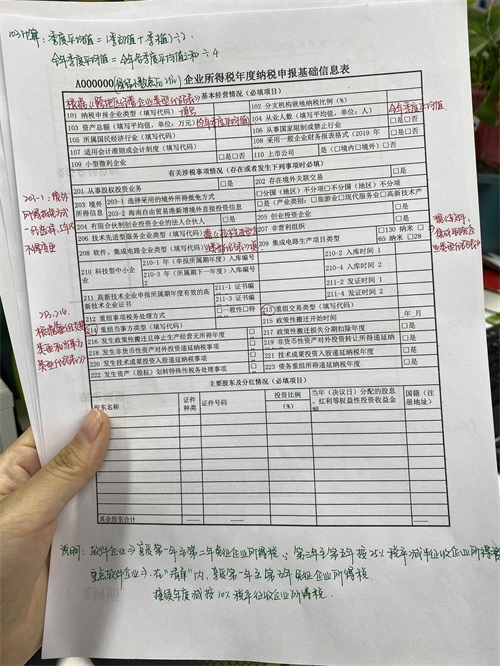 103计算：季度平均值 = (季初值 + 季末值) ÷ 2.
全年季度平均值 = 全年各季度平均值之和 ÷ 4
A000000 企业所得税年度纳税申报基础信息表
基本经营情况（必填项目）
101 纳税申报企业类型（填写代码）
102 分支机构就地纳税比例（%）
103 资产总额（填写平均值，单位：万元） 全年季度平均值
104 从业人数（填写平均值，单位：人） 全年季度平均值
105 所属国民经济行业（填写代码）
106 从事国家限制或禁止行业 □是□否
107 适用会计准则或会计制度（填写代码）
108 采用一般企业财务报表格式（2019年 □是□否
109 小型微利企业 □是□否
110 上市公司 是（□境内□境外）□否
有关涉税事项情况（存在或者发生下列事项时必填）
201 从事股权投资业务 □是
202 存在境外关联交易 □是
203 境外所得信息
203-1 选择采用的境外所得抵免方式 □分国（地区）不分项□不分国（地区）不分项
203-2 海南自由贸易港新增境外直接投资信息 □是（产业类别：□旅游业□现代服务业□高新技术产
204 有限合伙制创业投资企业的法人合伙人 □是
205 创业投资企业 □是
206 技术先进型服务企业类型（填写代码）
207 非营利组织 □是
208 软件、集成电路企业类型（填写代码）
209 集成电路生产项目类型 □130 纳米 □65 纳米 □28
210 科技型中小企业
210-1 年（申报所属期年度）入库编号
210-2 入库时间 1
210-3 年（所属期下一年度）入库编号
210-4 入库时间 2
211 高新技术企业申报所属期年度有效的高新技术企业证书
211-1 证书编号
211-2 发证时间 1
211-3 证书编号
211-4 发证时间 2
212 重组事项税务处理方式 □一般性□特
213 重组交易类型（填写代码）
214 重组当事方类型（填写代码）
215 政策性搬迁开始时间 年_月
216 发生政策性搬迁且停止生产经营无所得年度 □是
217 政策性搬迁损失分期扣除年度 □是
218 发生非货币性资产对外投资递延纳税事项 □是
219 非货币性资产对外投资转让所得递延纳 □是
220 发生技术成果投资入股递延纳税事项 □是
221 技术成果投资入股递延纳税年度 □是
222 发生资产（股权）划转特殊性税务处理事项 □是
223 债务重组所得递延纳税年度 □是
主要股东及分红情况（必填项目）
股东名称 证件种类 证件号码 投资比例（%） 当年（决议日）分配的股息、红利等权益性投资收益金额 国籍（注册地址）
其余股东合计 —— ——
说明：软件企业 → 享受第一年至第二年免征企业所得税，第三年至第五年按25%税率减半征收企业所得税
重点软件企业 → 在"清单"内，享受第一年至第五年免征企业所得税，
接续年度减按10%税率征收企业所得税.